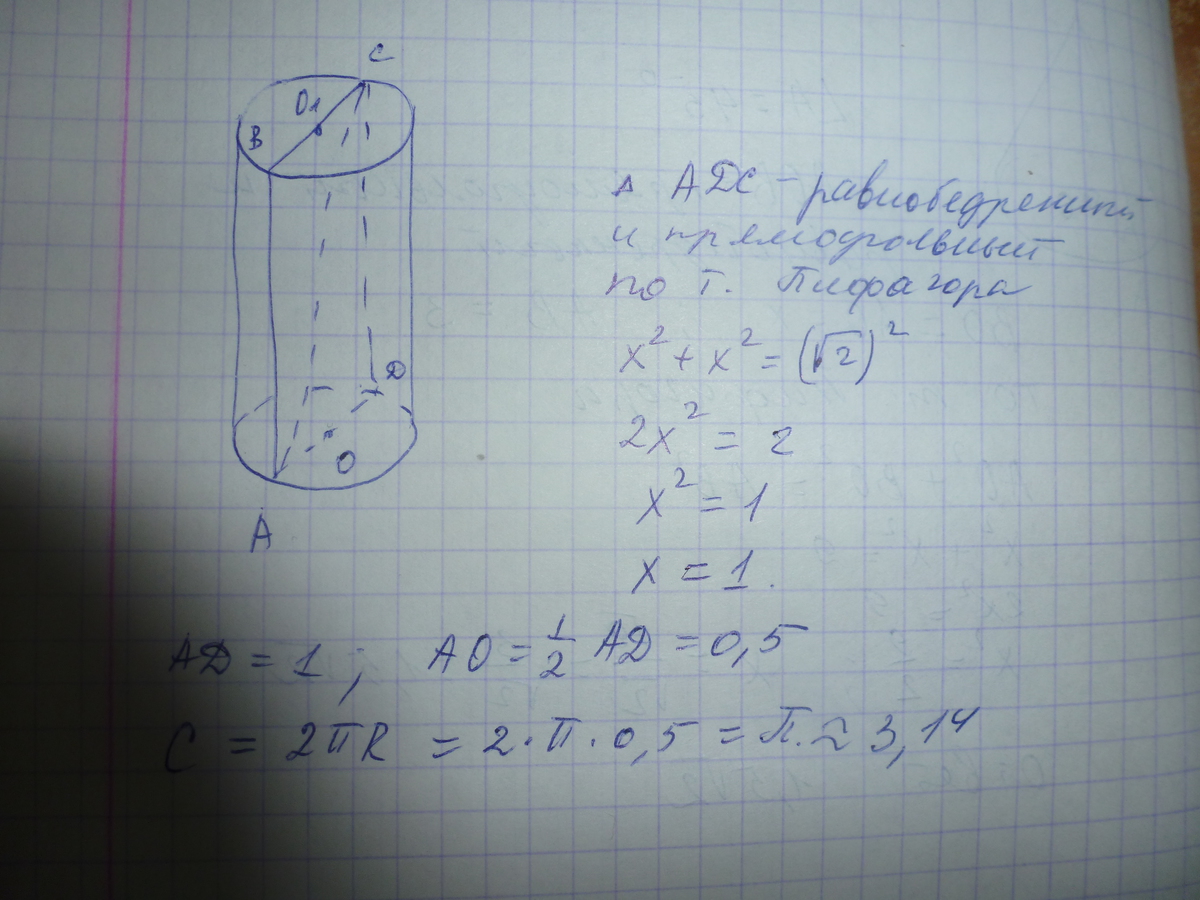 C
O₁
B
D
O
A
Δ ADC – равнобедренный
и прямоугольный
по т. Пифагора
x² + x² = (√2)²
2x² = 2
x² = 1
x = 1.
AD = 1; AO = 1/2 AD = 0,5
C = 2πR = 2·π·0,5 = π. ≈ 3,14